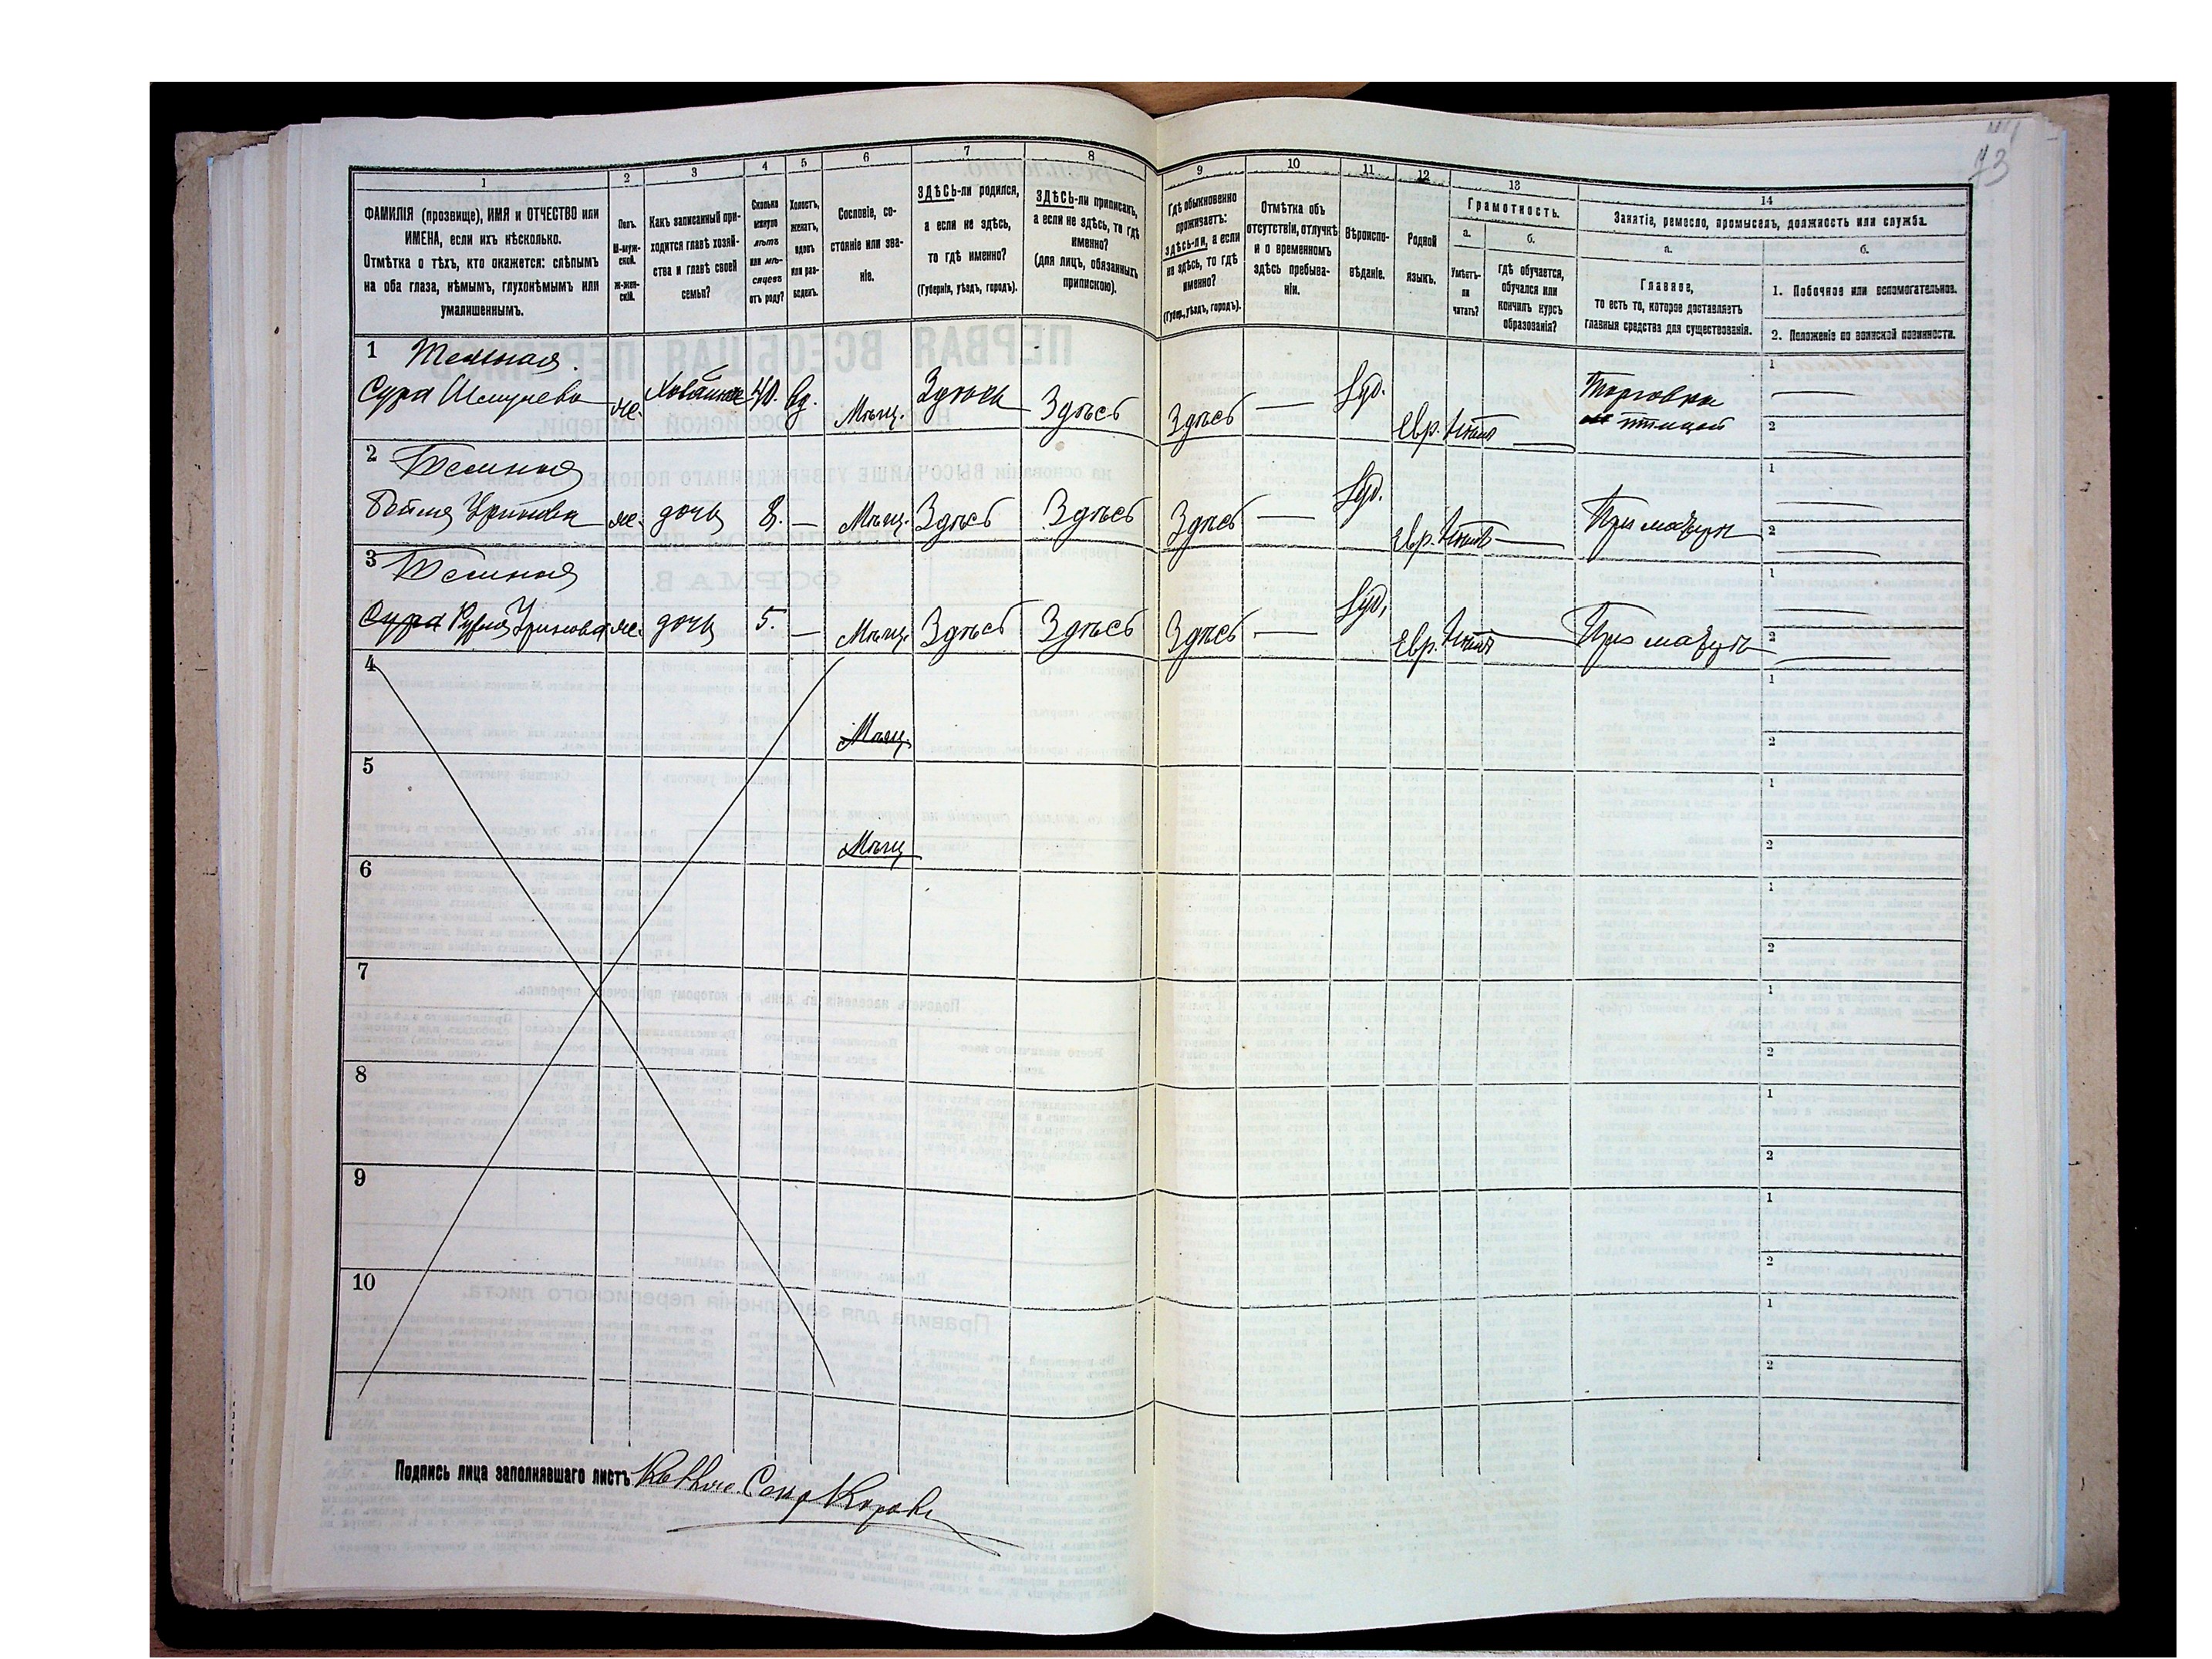 73
1
2
3
4
5
6
7
8
9
10
11
12
13
14
ФАМИЛІЯ (прозвище), ИМЯ и ОТЧЕСТВО или
ИМЕНА, если ихъ нѣсколько.
Отмѣтка о тѣхъ, кто окажется: слѣпымъ
на оба глаза, нѣмымъ, глухонѣмымъ или
умалишеннымъ.
Полъ.
М-муж-
ской.
Ж-жен-
скій.
Какъ записанный при-
ходится главѣ хозяй-
ства и главѣ своей
семьи?
Сколько
минуло
лѣтъ
или мѣ-
сяцевъ
отъ роду?
Холостъ,
женатъ,
вдовъ
или раз-
веденъ.
Сословіе, со-
стояніе или зва-
ніе.
ЗДѢСЬ-ли родился,
а если не здѣсь,
то гдѣ именно?
(Губернія, уѣздъ, городъ).
ЗДѢСЬ-ли приписанъ,
а если не здѣсь, то гдѣ
именно?
(для лицъ, обязанныхъ
припискою).
Гдѣ обыкновенно
проживаетъ:
здѣсь-ли, а если
не здѣсь, то гдѣ
именно?
(Губер., уѣздъ, городъ).
Отмѣтка объ
отсутствіи, отлучкѣ
и о временномъ
здѣсь пребыва-
ніи.
Вѣроиспо-
вѣданіе.
Родной
языкъ.
Грамотность.
а.
Умѣетъ-
ли
читать?
б.
гдѣ обучается,
обучался или
кончилъ курсъ
образованія?
Занятіе, ремесло, промыселъ, должность или служба.
а.
Главное,
то есть то, которое доставляетъ
главныя средства для существованія.
б.
1. Побочное или вспомогательное.
2. Положеніе по воинской повинности.
1
Сура Шмулева
же. Хозяйка 40. вд. Мѣщ. Здѣсь Здѣсь Здѣсь — Іуд. Евр. Нѣтъ — Торговка
птицей
1
2
2
же. дочь 8. — Мѣщ. Здѣсь Здѣсь Здѣсь — Іуд. Евр. Нѣтъ — При матери
1
2
3
Сура
же. дочь 5. — Мѣщ. Здѣсь Здѣсь Здѣсь — Іуд. Евр. Нѣтъ — При матери
1
2
4
Мѣщ.
1
2
5
Мѣщ
1
2
6
1
2
7
1
2
8
1
2
9
1
2
10
1
2
Подпись лица заполнявшаго листъ